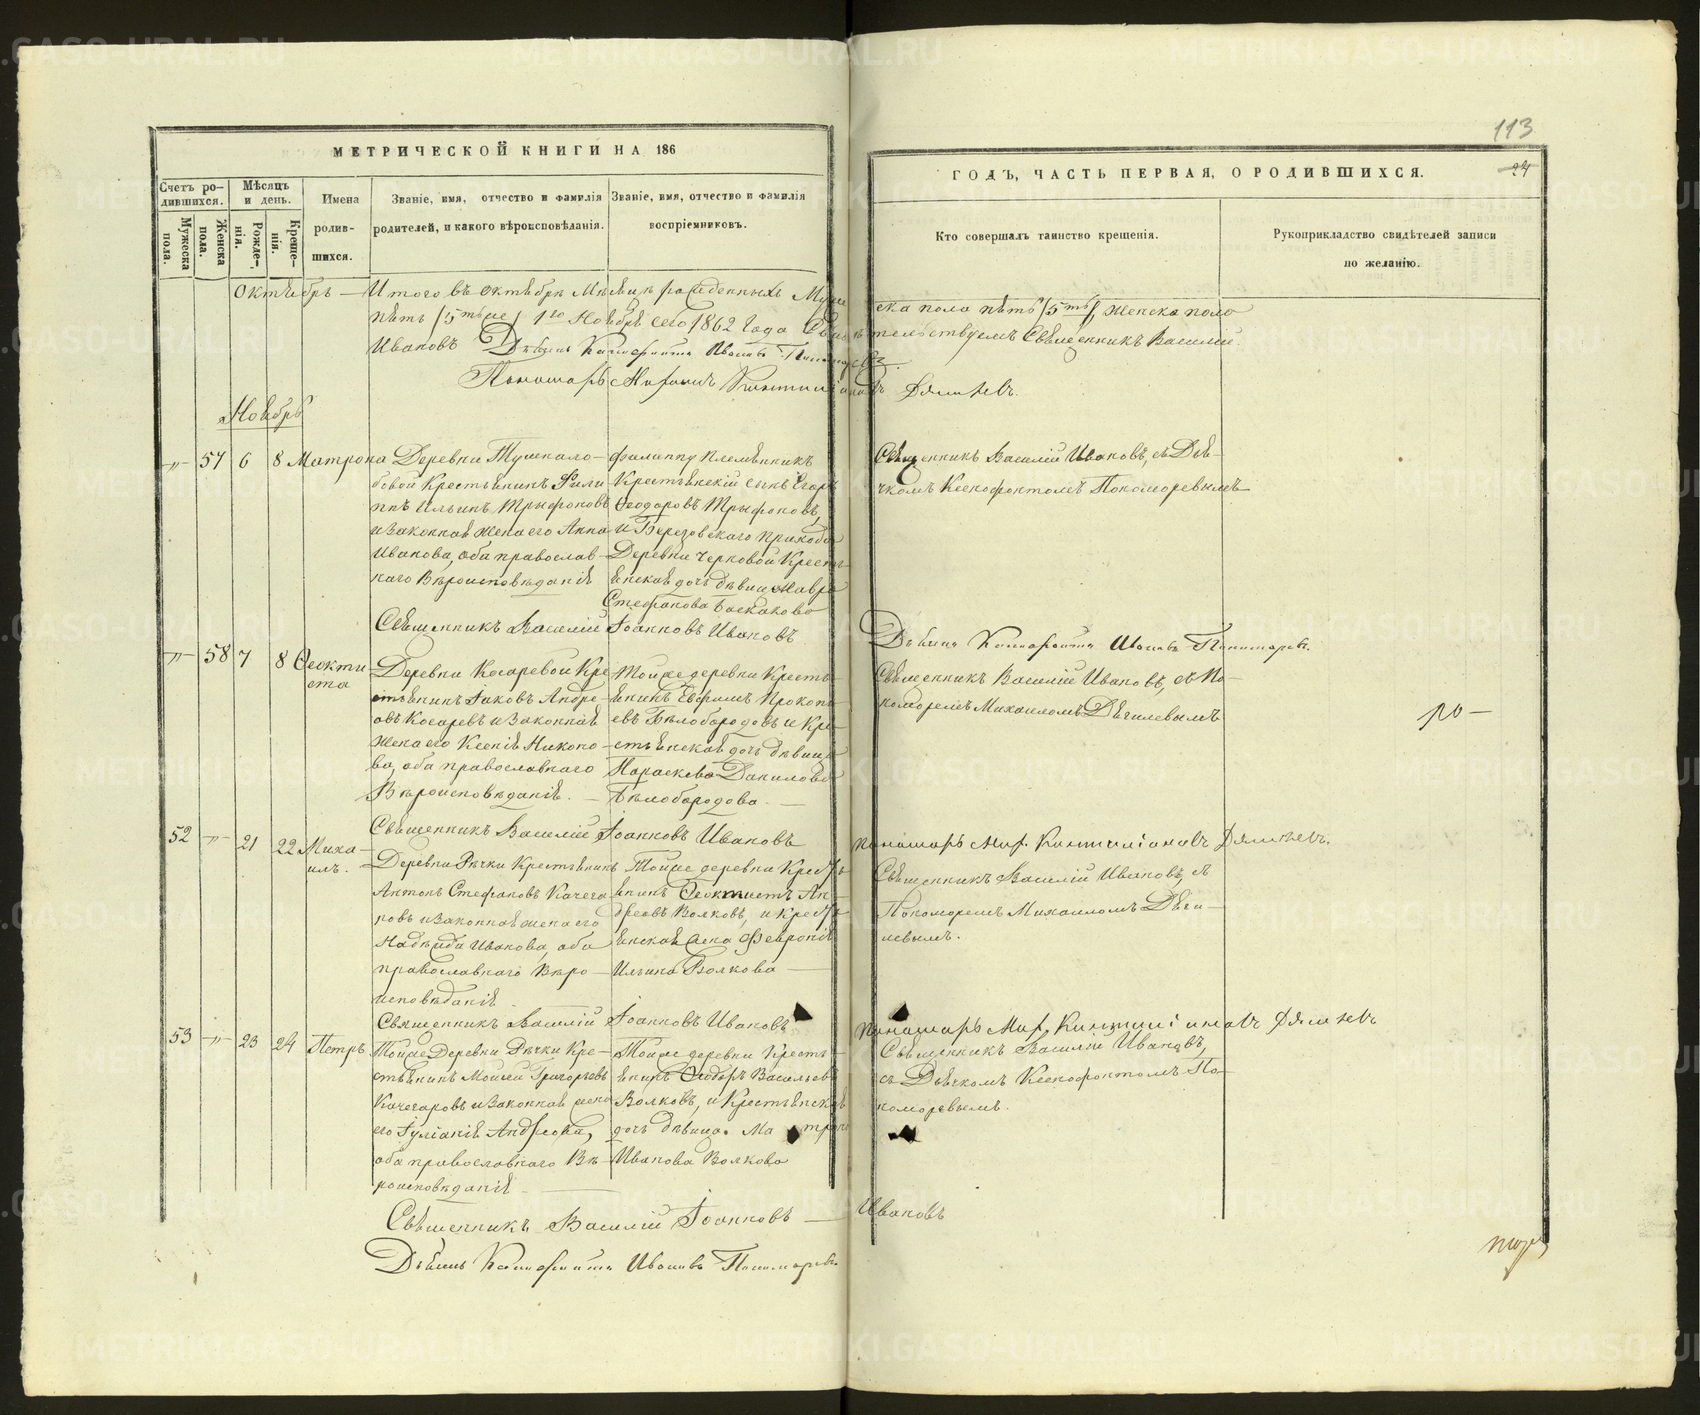 113
24
МЕТРИЧЕСКОЙ КНИГИ НА 186
ГОДЪ, ЧАСТЬ ПЕРВАЯ, О РОДИВШИХСЯ.
Счетъ ро-
дившихся.
Мужеска
пола.
Женска
пола.
Мѣсяцъ
и день.
Рожде-
нія.
Креще-
нія.
Имена
родив-
шихся.
Званіе, имя, отчество и фамилія
родителей, и какого вѣроисповѣданія.
Званіе, имя, отчество и фамилія
воспріемниковъ.
Кто совершалъ таинство крещенія.
Рукоприкладство свидѣтелей записи
по желанію.
Октябрь — Итого въ Октябрѣ Мѣсяцѣ рожденныхъ Муже
ска пола пять /5ть/, женска пола
пять /5ть/ 1го Ноября сего 1862 года
тельствуемъ Священникъ Василій
Ивановъ
Ноябрь
-"- 57 6 8 Матрона
Деревни
бовой Крестьянинъ Фили
ппъ Ильинъ Трыфоновъ
и законная жена его Анна
Иванова, оба православ-
наго Вѣроисповѣданія
Филиппу племянникъ
Крестьянскій сынъ Егоръ
Ѳеодоровъ Трыфоновъ,
и Березовскаго прихода
Деревни Черновой Кресть
янская дочь дѣвица Мавра
Стефанова Баскакова
Священникъ Василій Ивановъ, съ Дья-
чкомъ Ксенофонтомъ Пономоревымъ
Священникъ Василій Іоанновъ Ивановъ
-"- 58 7 8 Ѳеокти
ста
Деревни Косаревой Кре
стьянинъ Іаковъ Андре-
овъ Косаревъ и законная
жена его Ксенія Никоно-
ва, оба православнаго
Вѣроисповѣданія.
Тойже деревни Кресть
янинъ Ефимъ Прокопь
евъ Бѣлобородовъ и Кре-
стьянская дочь дѣвица
Параскева Данилова
Бѣлобородова.
Священникъ Василій Ивановъ, съ По-
номоремъ Михаиломъ Дягилевымъ
Священникъ Василій Іоанновъ Ивановъ
52 -"- 21 22 Миха-
илъ.
Деревни Рѣчки Крестьянинъ
Антонъ Стефановъ Качега
ровъ и законная жена его
Надежда Иванова, оба
православнаго Вѣро-
исповѣданія
Тойже деревни Кресть
янинъ Ѳеоктистъ Ан-
дреевъ Волковъ, и Кресть
янская жена Февронія
Ильина Волкова
Священникъ Василій Ивановъ, съ
Пономоремъ Михаиломъ Дяги-
левымъ.
Священникъ Василій Іоанновъ Ивановъ
53 -"- 23 24 Петръ
Тойже Деревни Рѣчки Кре-
стьянинъ Моисей Григорьевъ
Качегаровъ и законная жена
его Іуліанія Андреева,
оба православнаго Вѣ-
роисповѣданія
Тойже деревни Кресть
янинъ Ѳеодоръ Васильевъ
Волковъ, и Крестьянская
дочь дѣвица Матрона
Иванова Волкова
Священникъ Василій Ивановъ,
съ Дьячкомъ Ксенофонтомъ По-
номоревымъ.
Священникъ Василій Іоанновъ — Ивановъ